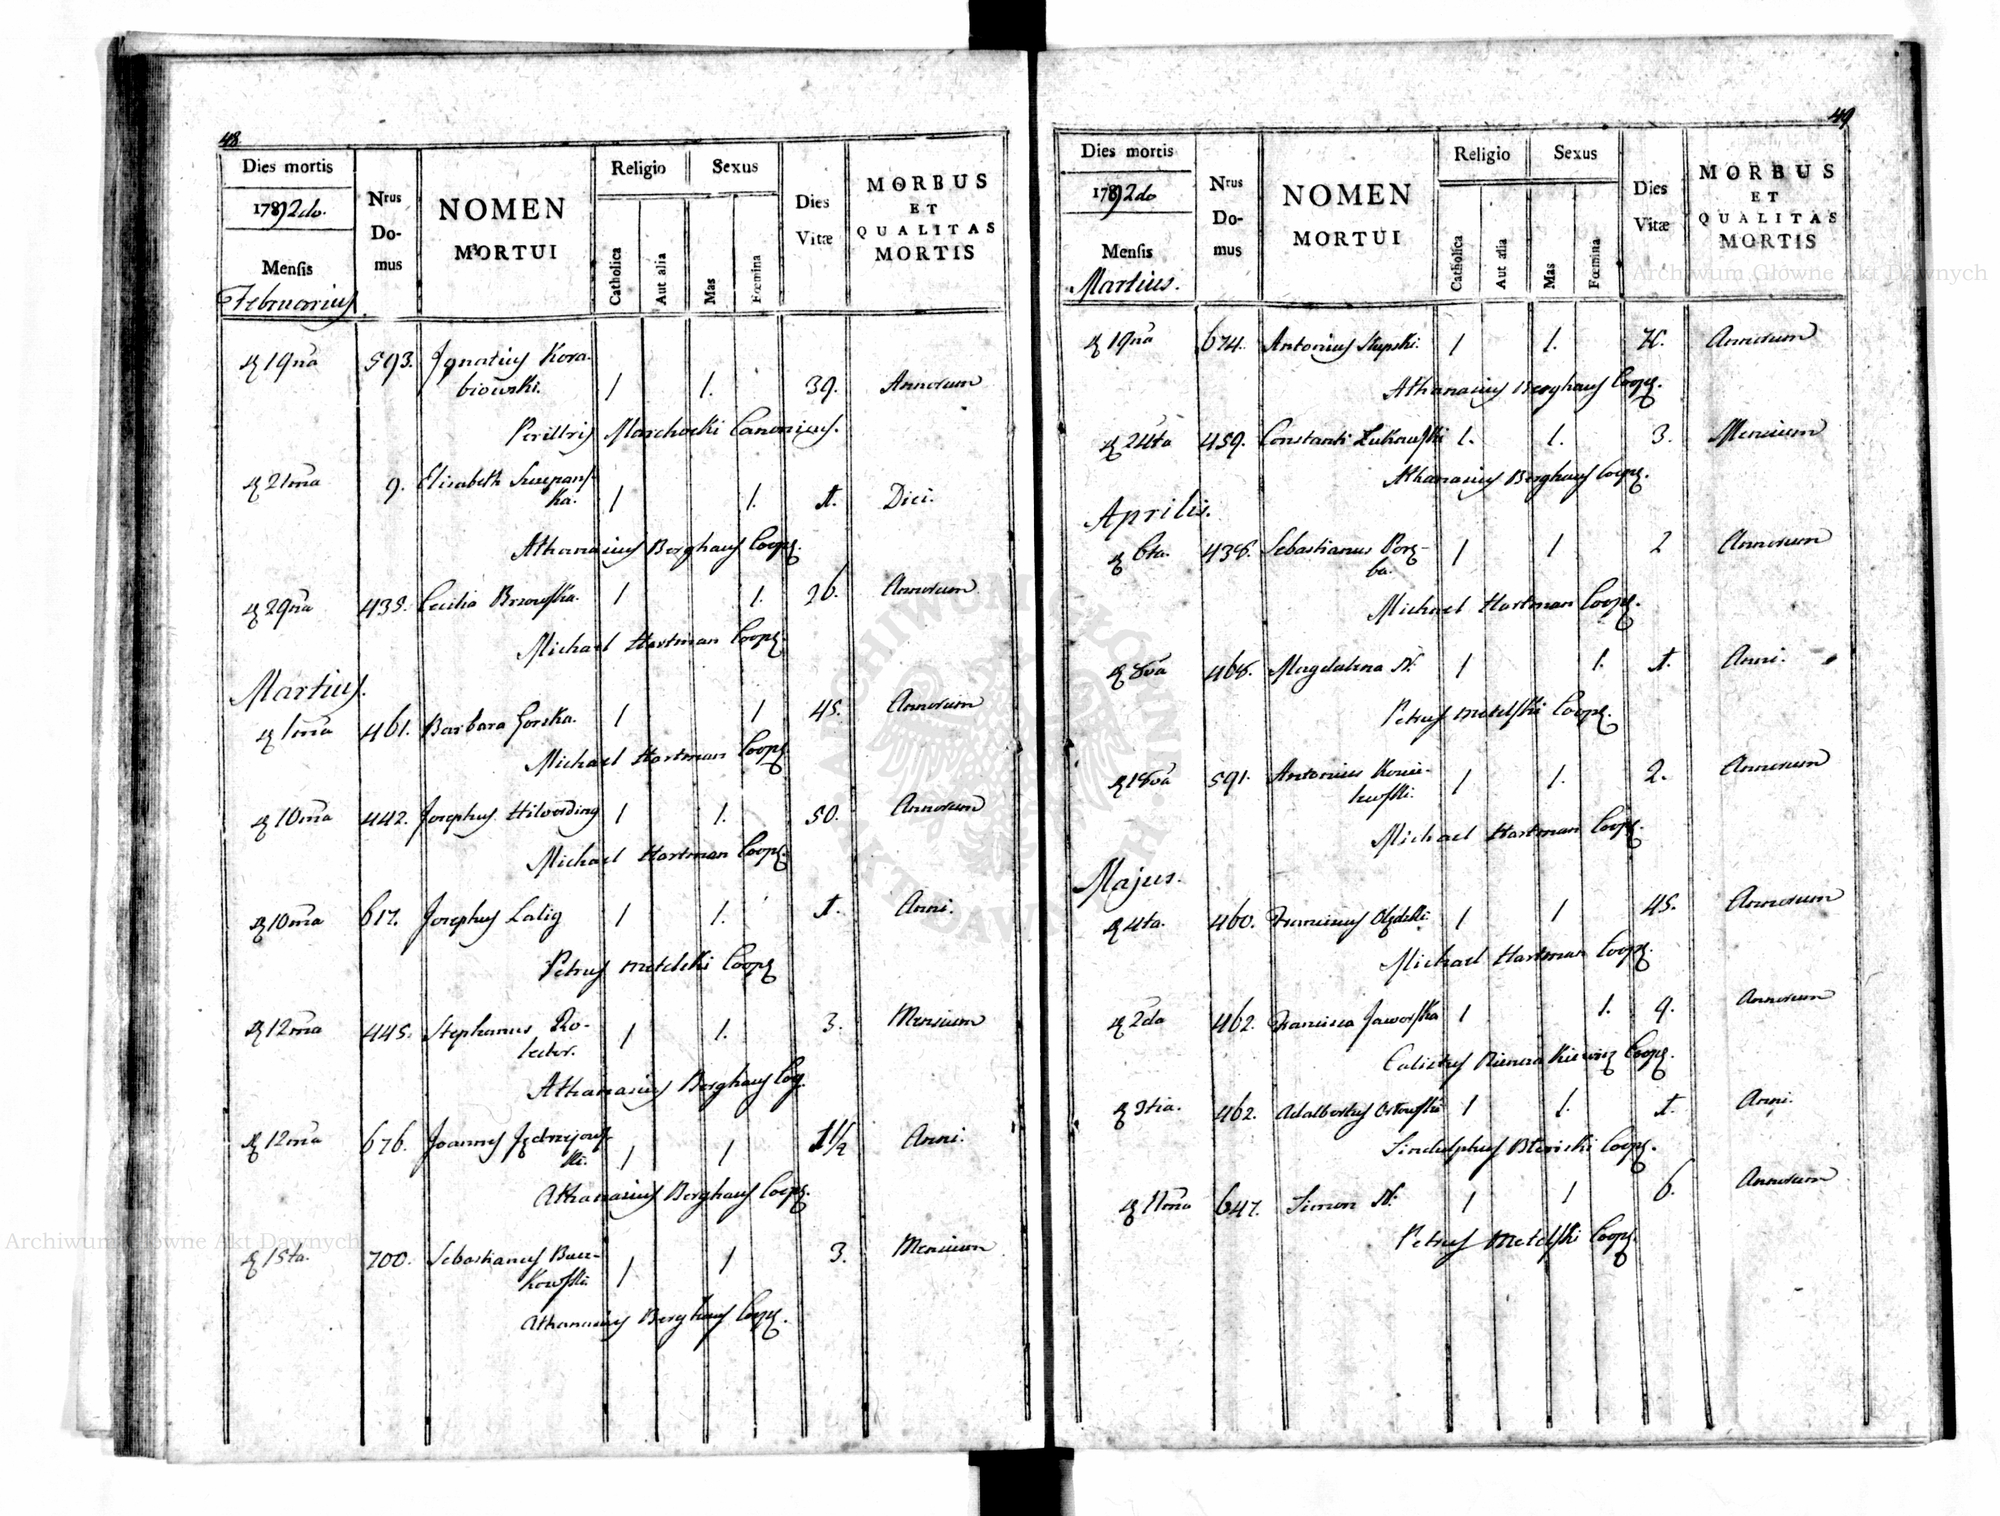 48
Dies mortis
1792do.
Mensis
Februarius
Nrus Domus
NOMEN
MORTUI
Religio
Catholica
Aut alia
Sexus
Mas
Fœmina
Dies
Vitæ
MORBUS
ET
QUALITAS
MORTIS
19na 593. Ignatius Kora-
biowski. 1 1. 39. Annorum
Perillris Marchocki Canonicus.
21ma 9. Elisabeth
ka. 1 1. 1. Diei.
Athanasius Berghaus Coop.
29na 435. Cecilia Brzowska. 1 1. 26. Annorum
Michael Hartman Coop.
Martius.
1ma 461. Barbara Gorska. 1 1 45. Annorum
Michael Hartman Coop.
10ma 442. Josephus Hilverding 1 1. 50. Annorum
Michael Hartman Coop.
10ma 617. Josephus Latig 1 1. 1. Anni.
Petrus Metelski Coop.
12ma 445. Stephanus Ro-
1 1. 3. Mensium
Athanasius Berghaus Coop.
12ma 676. Joannes Jędrzejows-
ki. 1 1 1 1/2 Anni.
Athanasius Berghaus Coop.
15ta. 700. Sebastianus
kowski. 1 1 3. Mensium
Athanasius Berghaus Coop.
49
Dies mortis
1792do
Mensis
Martius.
Nrus
Do-
mus
NOMEN
MORTUI
Religio
Catholica
Aut alia
Sexus
Mas
Fœmina
Dies
Vitæ
MORBUS
ET
QUALITAS
MORTIS
19na 674. Antonius Stupski. 1 1. Annorum
Athanasius Berghaus Coop.
24ta 459. Constanti Łukowski 1. 1. 3. Mensium
Athanasius Berghaus Coop.
Aprilis.
6ta. 438. Sebastianus Porę-
ba. 1 1 2 Annorum
Michael Hartman Coop.
8va 468. Magdalena N. 1 1. 1. Anni.
Petrus Metelski Coop.
18va 591. Antonius
1 1. 2. Annorum
Michael Hartman Coop.
Majus.
4ta. 460. Franciscus 1 1 45. Annorum
Michael Hartman Coop.
2da 462. Francisca Jaworska 1 1. 9. Annorum
Calixtus Coop.
3tia. 462. Adalbertus Ostowski 1 1. 1. Anni.
Sindulphus Coop.
11ma 647. Simon N. 1 1 6. Annorum
Petrus Metelski Coop.
Archiwum Główne Akt Dawnych